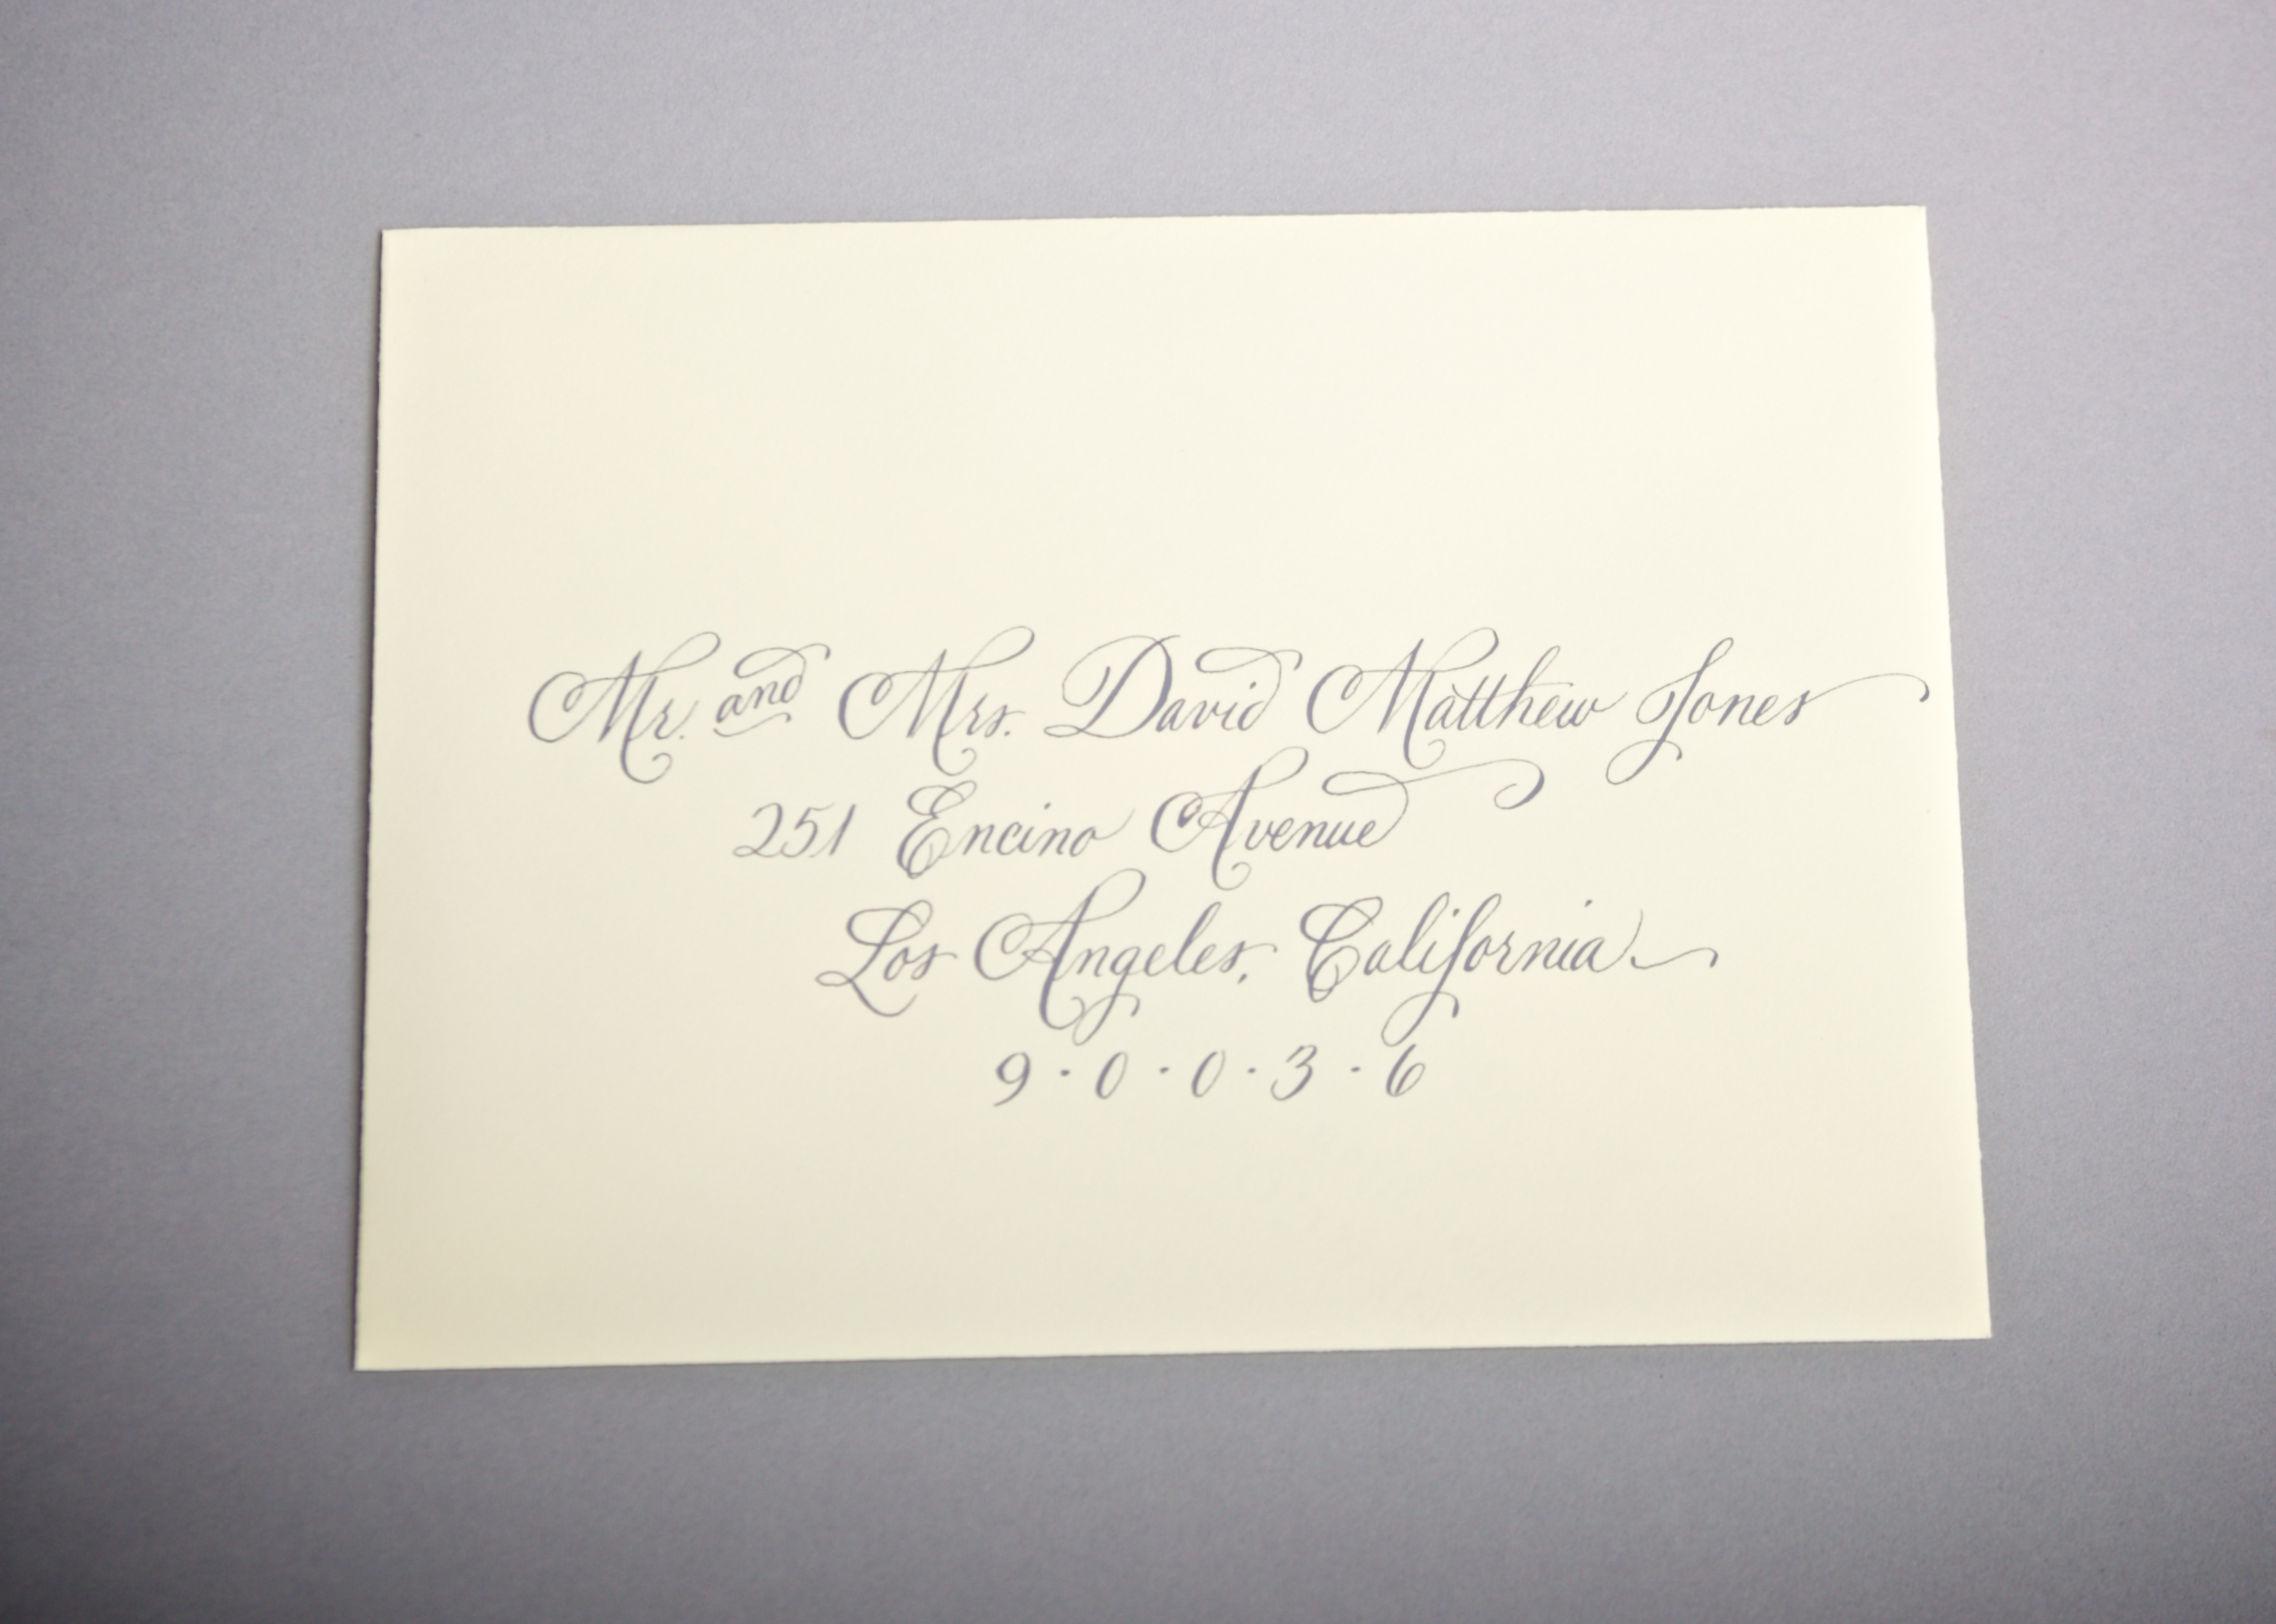 Mr. and Mrs. David Matthew Jones
251 Encino Avenue
Los Angeles, California
9·0·0·3·6